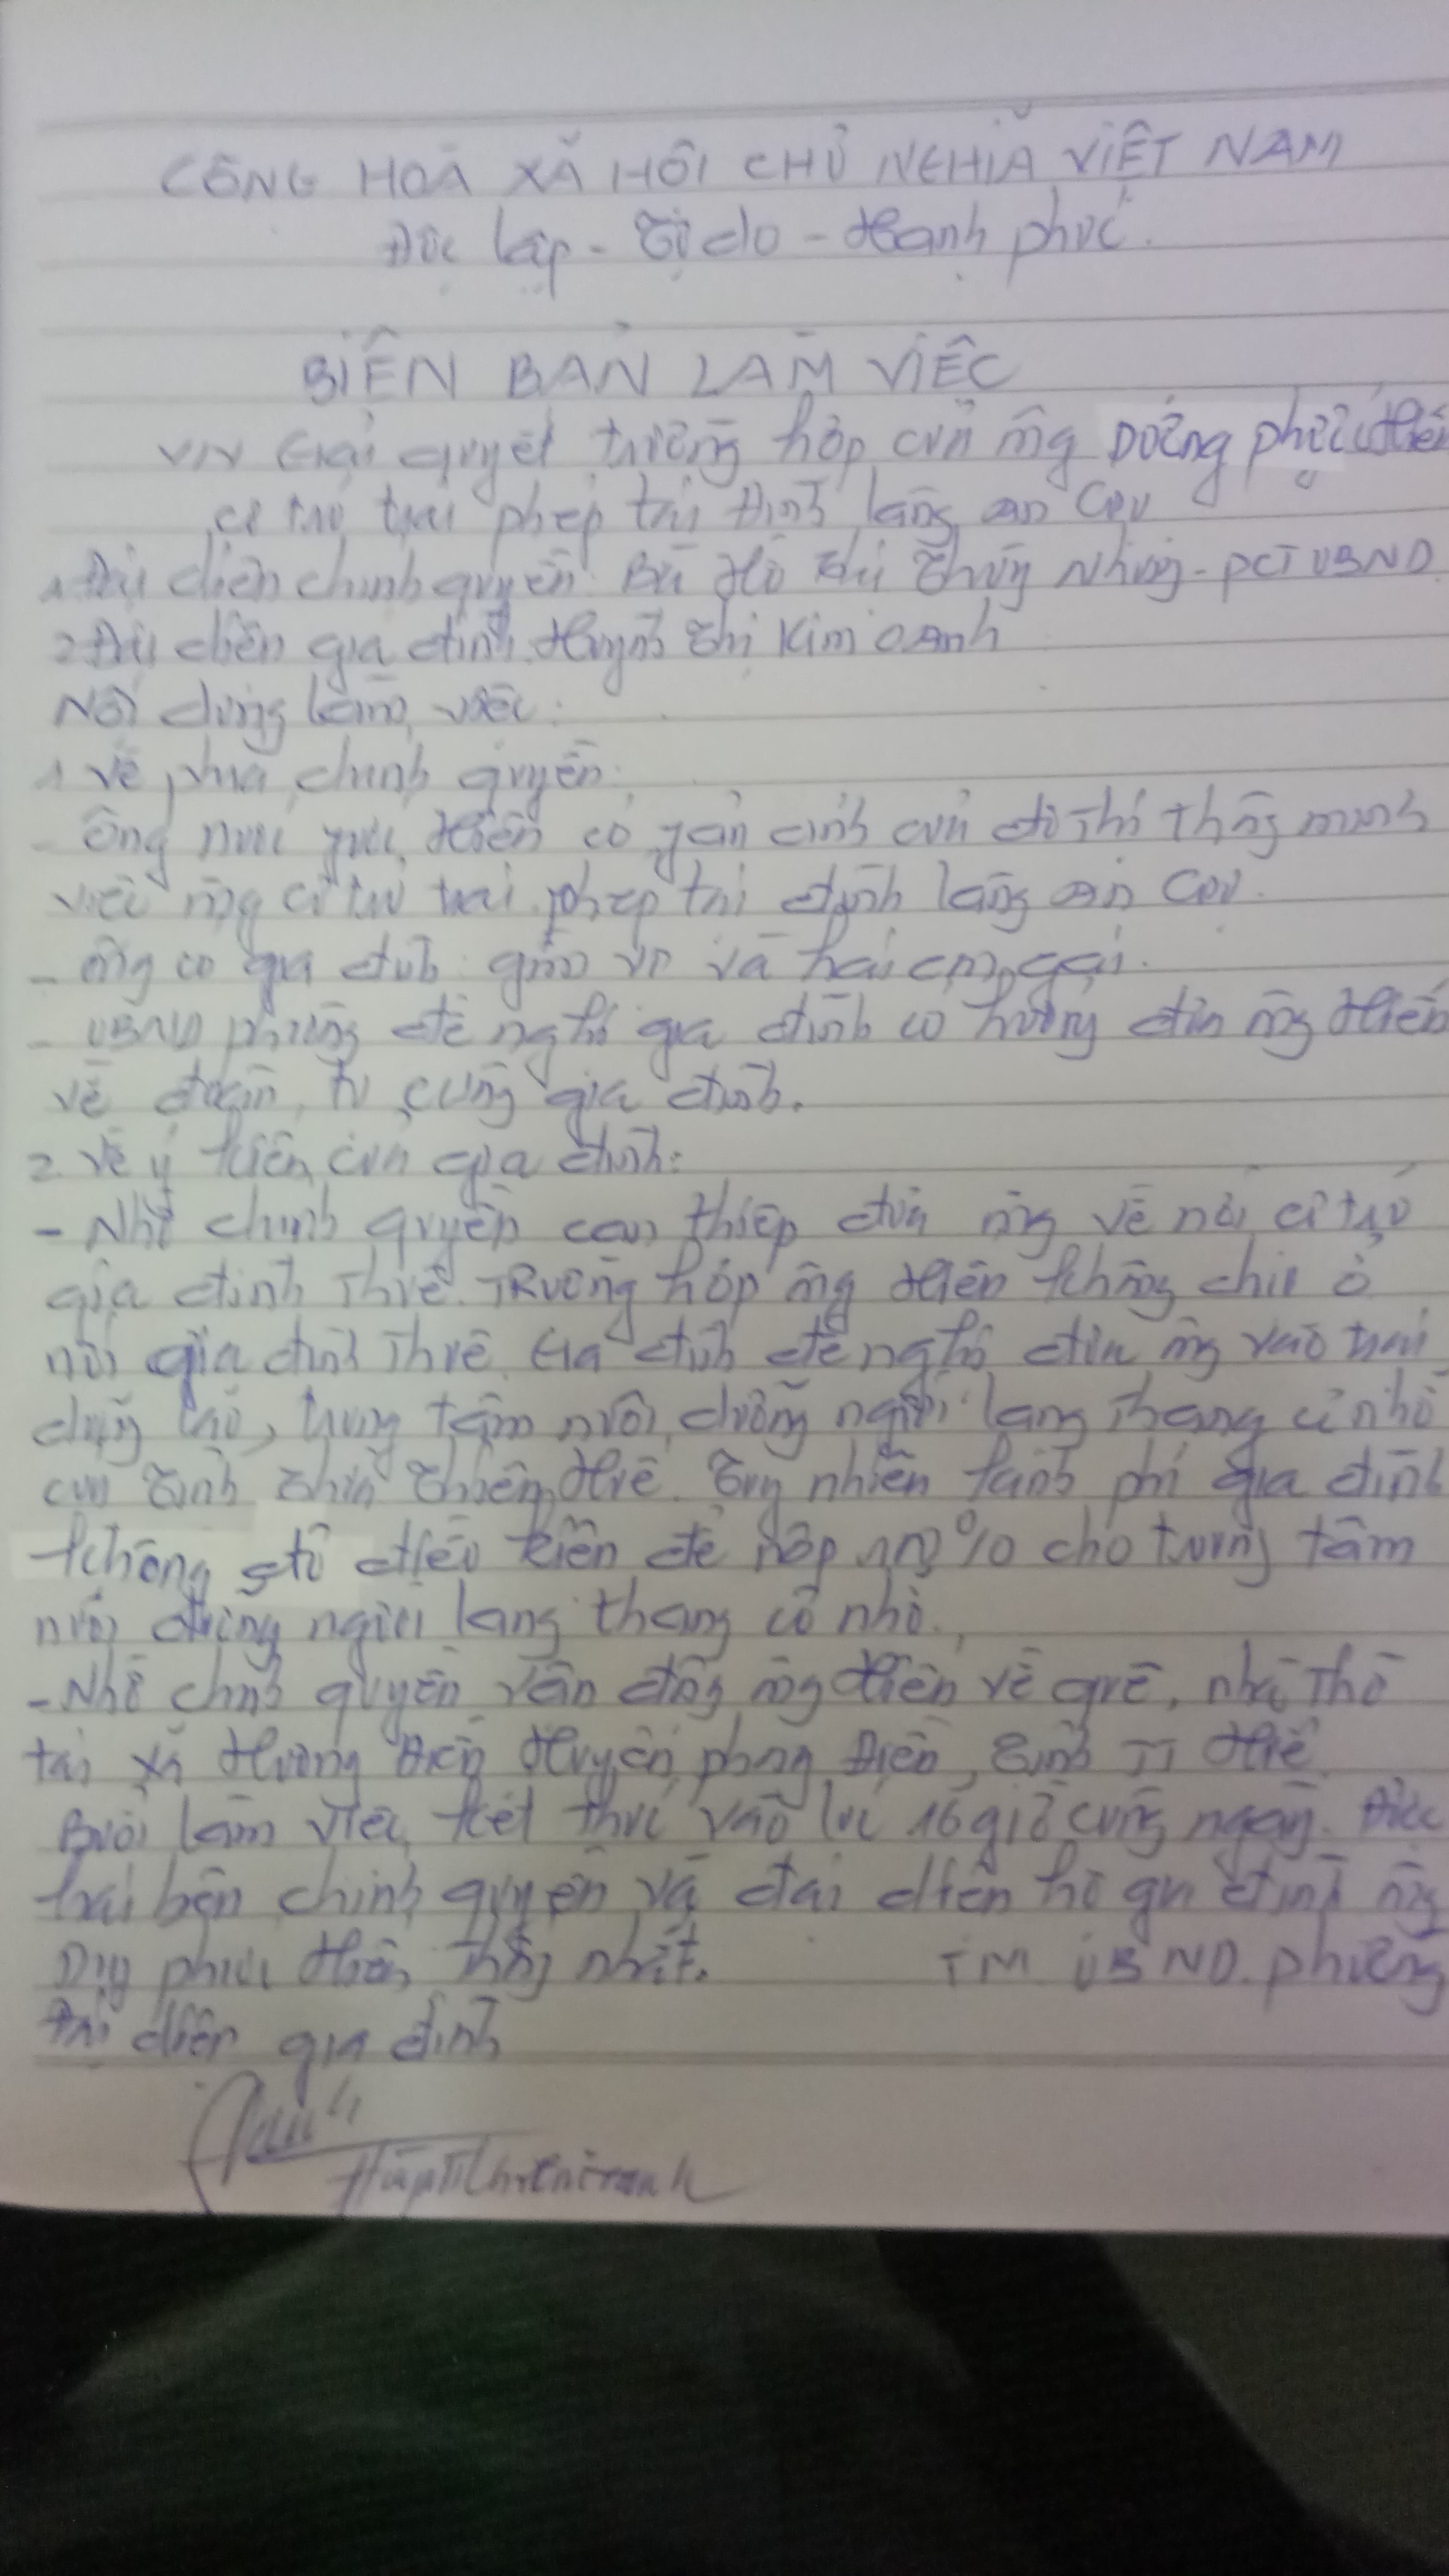 CÔNG HOÀ XÃ HỘI CHỦ NGHĨA VIỆT NAM
Độc lập - Tự do - Hạnh phúc.
BIÊN BẢN LÀM VIỆC
V/V Giải quyết trường hợp của ông Dương Phước Hiền
cư trú trái phép tại Đình làng An Cựu
1 Đại diện chính quyền: Bà Hồ Thị Thùy Nhung - PCT UBND
2 Đại diện gia đình: Huỳnh Thị Kim Oanh
Nội dung làm việc:
1 Về phía chính quyền:
- Ông Hiền có phản ánh của đô thị thông minh
việc ông cư trú trái phép tại đình làng An Cựu.
- Ông có gia đình: gồm vợ và hai con gái.
- UBND phường đề nghị gia đình có hướng đưa ông Hiền
về đoàn tụ cùng gia đình.
2 Về ý kiến của gia đình:
- Nhờ chính quyền can thiệp đưa ông về nơi cư trú
gia đình thuê. Trường hợp ông Hiền không chịu ở
nơi gia đình thuê. Gia đình đề nghị đưa ông vào trại
dưỡng lão, trung tâm nuôi dưỡng người lang thang cơ nhỡ
của Tỉnh Thừa Thiên Huế. Tuy nhiên kinh phí gia đình
không đủ điều kiện để nộp 100% cho trung tâm
nuôi dưỡng người lang thang cơ nhỡ.
- Nhờ chính quyền vận động ông Hiền về quê, nhà thờ
tại xã Hương Điền Huyện Phong Điền, Tỉnh TT Huế
Buổi làm việc kết thúc vào lúc 16 giờ cùng ngày. Được
hai bên chính quyền và đại diện hộ gia đình ông
Dương Phước Hiền thống nhất. TM UBND. phường
Đại diện gia đình